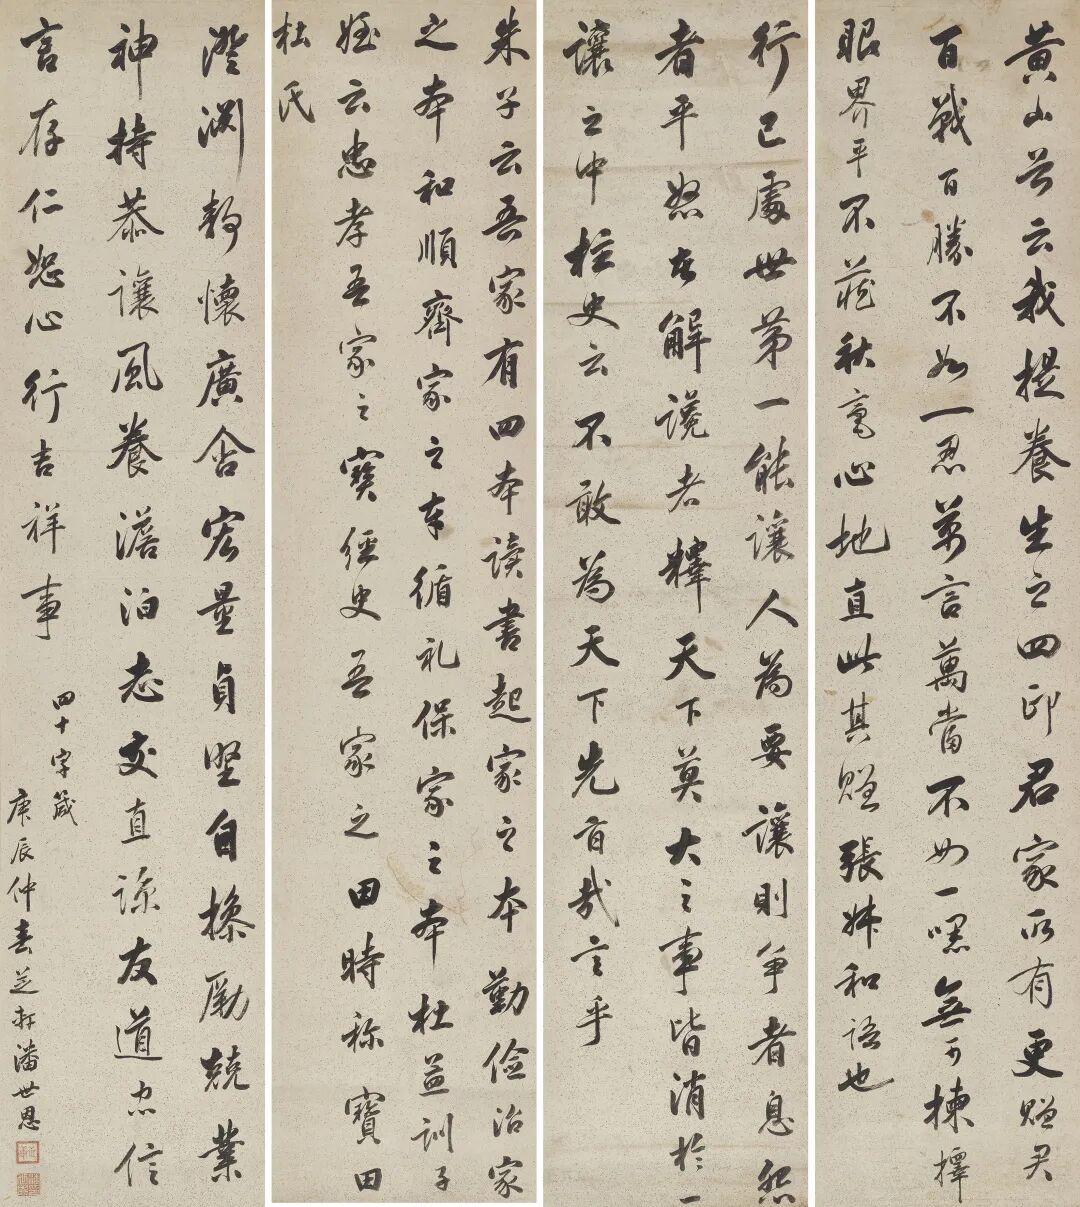 黃山谷云我提養生之四印君家所有更贈君
百戰百勝不如一忍萬言萬當不如一嘿無可揀擇
眼界平不藏秋毫心地直此其贈張叔和語也
行己處世第一能讓人為要讓則爭者息怨
者平怒者解謗者釋天下莫大之事皆消於一
讓之中柱史云不敢為天下先旨哉言乎
朱子云吾家有四本读書起家之本勤儉治家
之本和順齊家之本循礼保家之本杜益訓子
姪云忠孝吾家之寶經史吾家之田時称寶田
杜氏
澄淵靜懷廣含宏量貞堅自操勵兢業
神持恭讓風養澹泊志交直諒友道忠信
言存仁恕心行吉祥事
四十字箴
庚辰仲春芝軒潘世恩